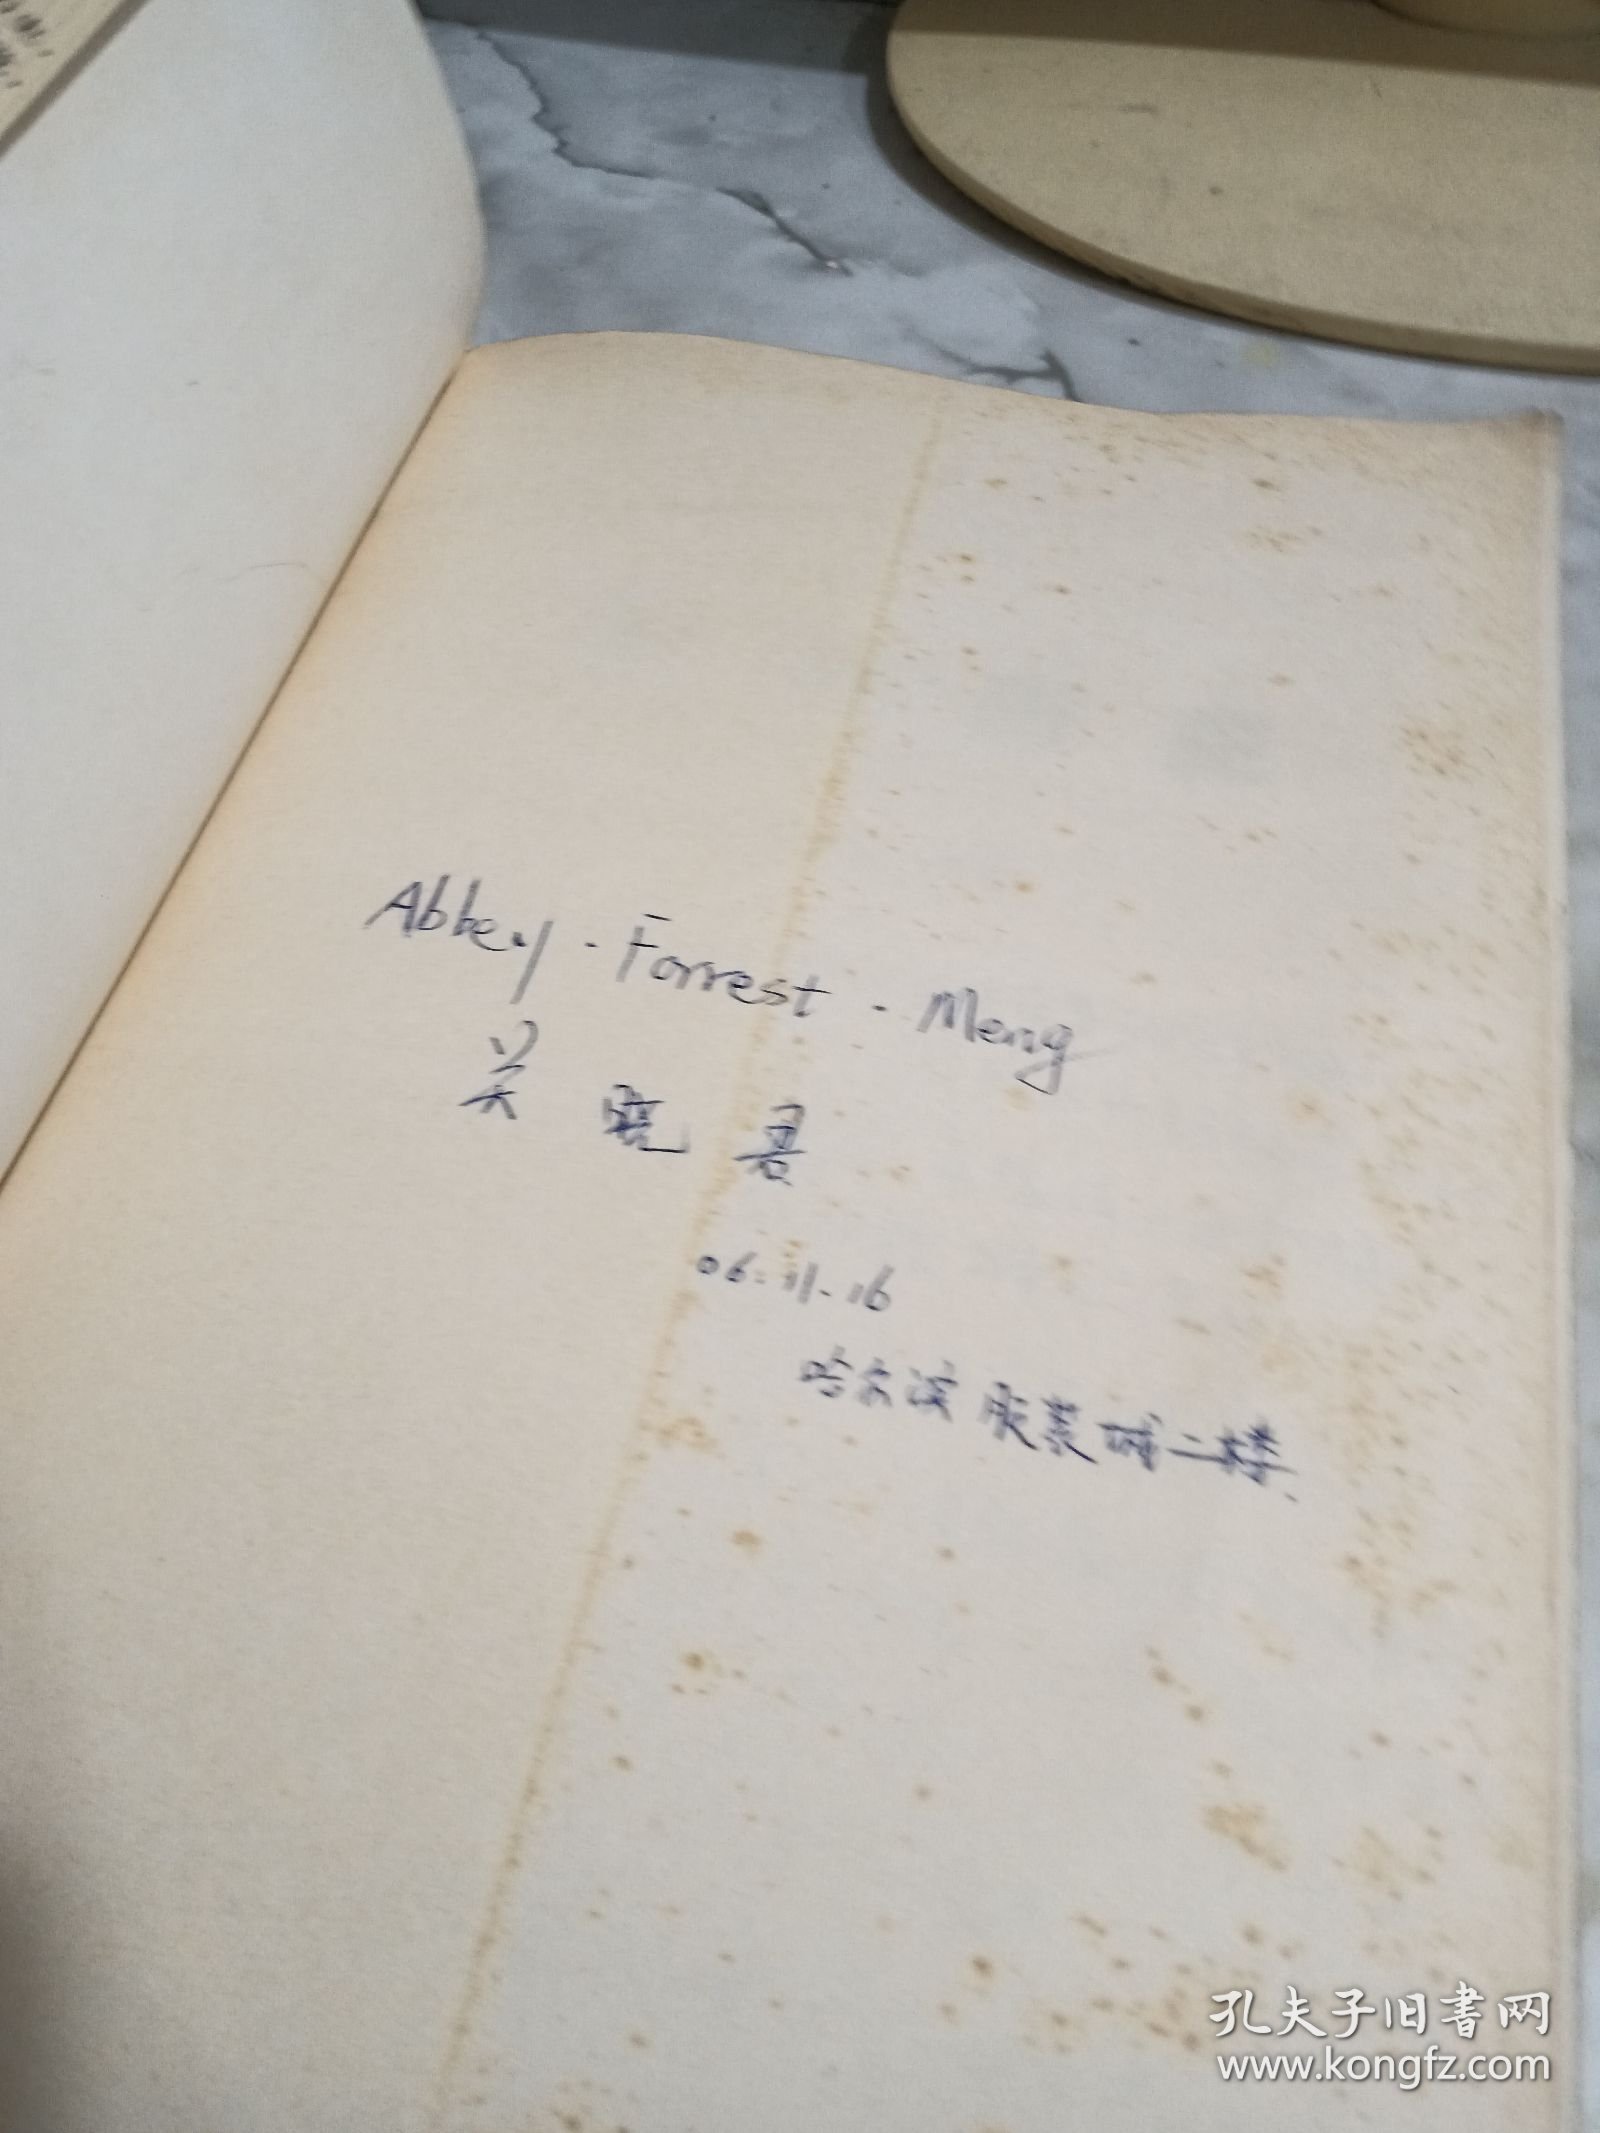 Abbey - Forrest - Meng
关晓君
06.11.16
哈尔滨服装城二楼.
孔夫子旧书网
www.kongfz.com